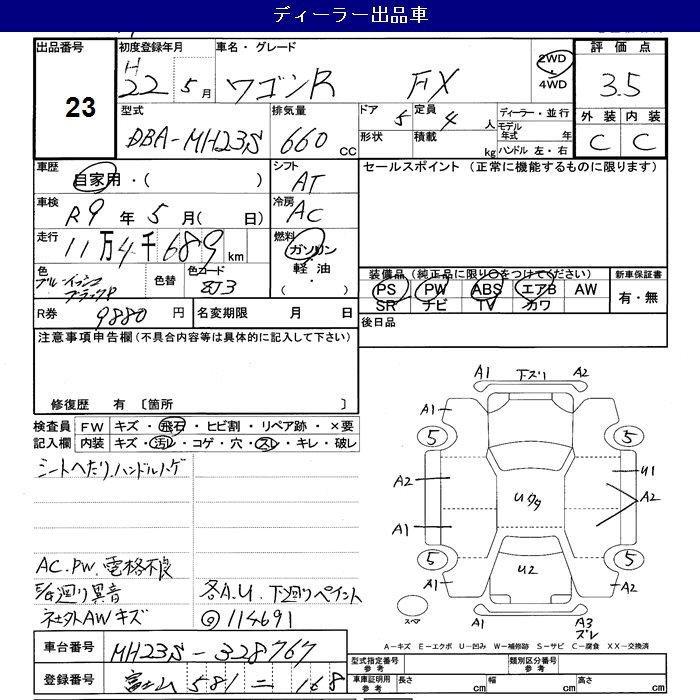 ディーラー出品車
出品番号
23
初度登録年月
H22 5月
車名・グレード
ワゴンR FX
2WD
・4WD
評価点
3.5
外装 内装
C C
型式
DBA-MH23S
排気量
660 cc
ドア 5
定員 4 人
形状
積載 kg
ディーラー・並行
モデル年式 年
ハンドル 左・右
車歴
自家用・( )
シフト
AT
セールスポイント (正常に機能するものに限ります)
車検
R9年 5月( 日)
冷房
AC
走行
11万4千689km
燃料
ガソリン
・軽油・
( )
色
ブルーイッシュ
ブラックP
色替
色コード
ZJ3
装備品(純正品に限り○をつけてください)
PS PW ABS エアB AW
SR ナビ TV カワ
新車保証書
有・無
R券 9880円
名変期限 月 日
後日品
注意事項申告欄(不具合内容等は具体的に記入して下さい)
修復歴 有 〔箇所 〕
検査員
記入欄
FW キズ・飛石・ヒビ割・リペア跡・×要
内装 キズ・汚レ・コゲ・穴・スレ・キレ・破レ
シートヘたり.ハンドルハゲ
AC.PW.電格不良
異音
社外AWキズ
各A.U.下廻りペイント
114691
A1 下ズリ A2
A1
5 5
A2 U1
A2
Uタタ
A1
5 5
U2
A1 A2
スペア
A1 A3
ズレ
A-キズ E-エクボ U-凹み W-補修跡 S-サビ C-腐食 XX-交換済
車台番号 MH23S-328767
登録番号 富士山 581 ニ 168
型式指定番号
参考
類別区分番号
参考
車庫証明用
参考
長さ cm
幅 cm
高さ cm